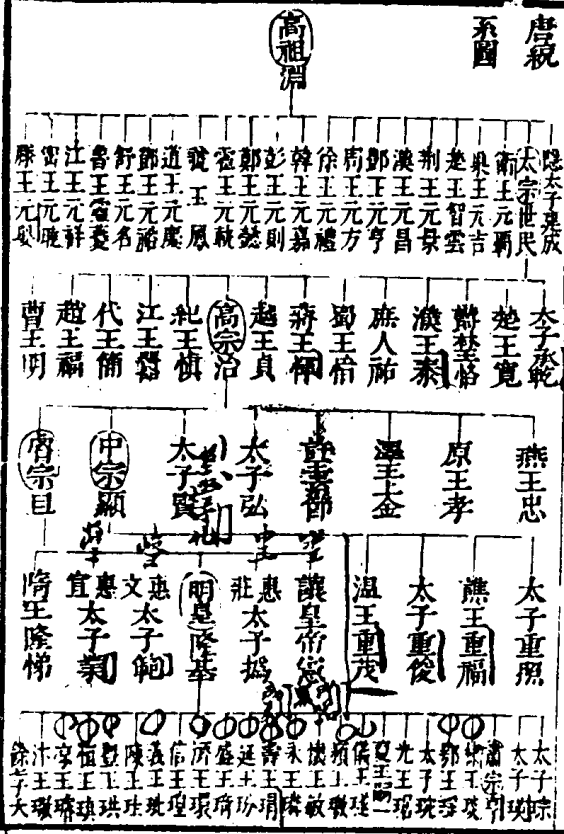 唐祝
系圖
高祖淵
隱太子建成
太宗世民
衛王元霸
巢王元吉
楚王智雲
荆王元景
漢王元昌
酆王元亨
周王元方
徐王元禮
韓王元嘉
彭王元則
鄭王元懿
霍王元軌
虢王鳳
道王元慶
鄧王元裕
舒王元名
魯王靈夔
江王元祥
密王元曉
滕王元嬰
太子承乾
楚王寬
鬱林王恪
濮王泰
庶人祐
蜀王愔
蔣王惲
越王貞
高宗治
紀王慎
江王囂
代王簡
趙王福
曹王明
燕王忠
原王孝
澤王上金
許王素節
太子弘
太子賢
中宗顯
睿宗旦
太子重照
譙王重福
太子重俊
温王重茂
讓皇帝憲
惠莊太子撝
明皇隆基
惠文太子範
惠宣太子業
隋王隆悌
太子琮
太子瑛
肅宗亨
棣王琰
鄂王瑶
太子琬
光王琚
夏王一
儀王璲
潁王璬
懷王敏
永王璘
壽王瑁
延王玢
盛王琦
濟王環
信王瑝
義王玼
陳王珪
豐王珙
恒王瑱
涼王璿
汴王璥